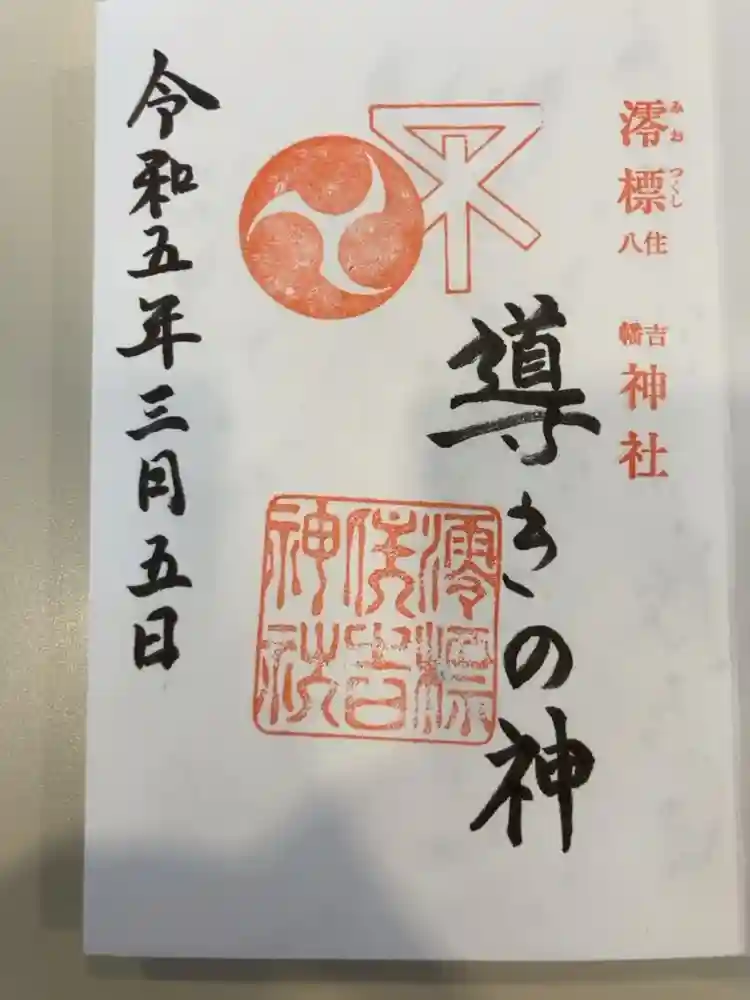 澪標
みおつくし
住吉
八幡
神社
導きの神
澪標
住吉
神社
令和五年三月五日